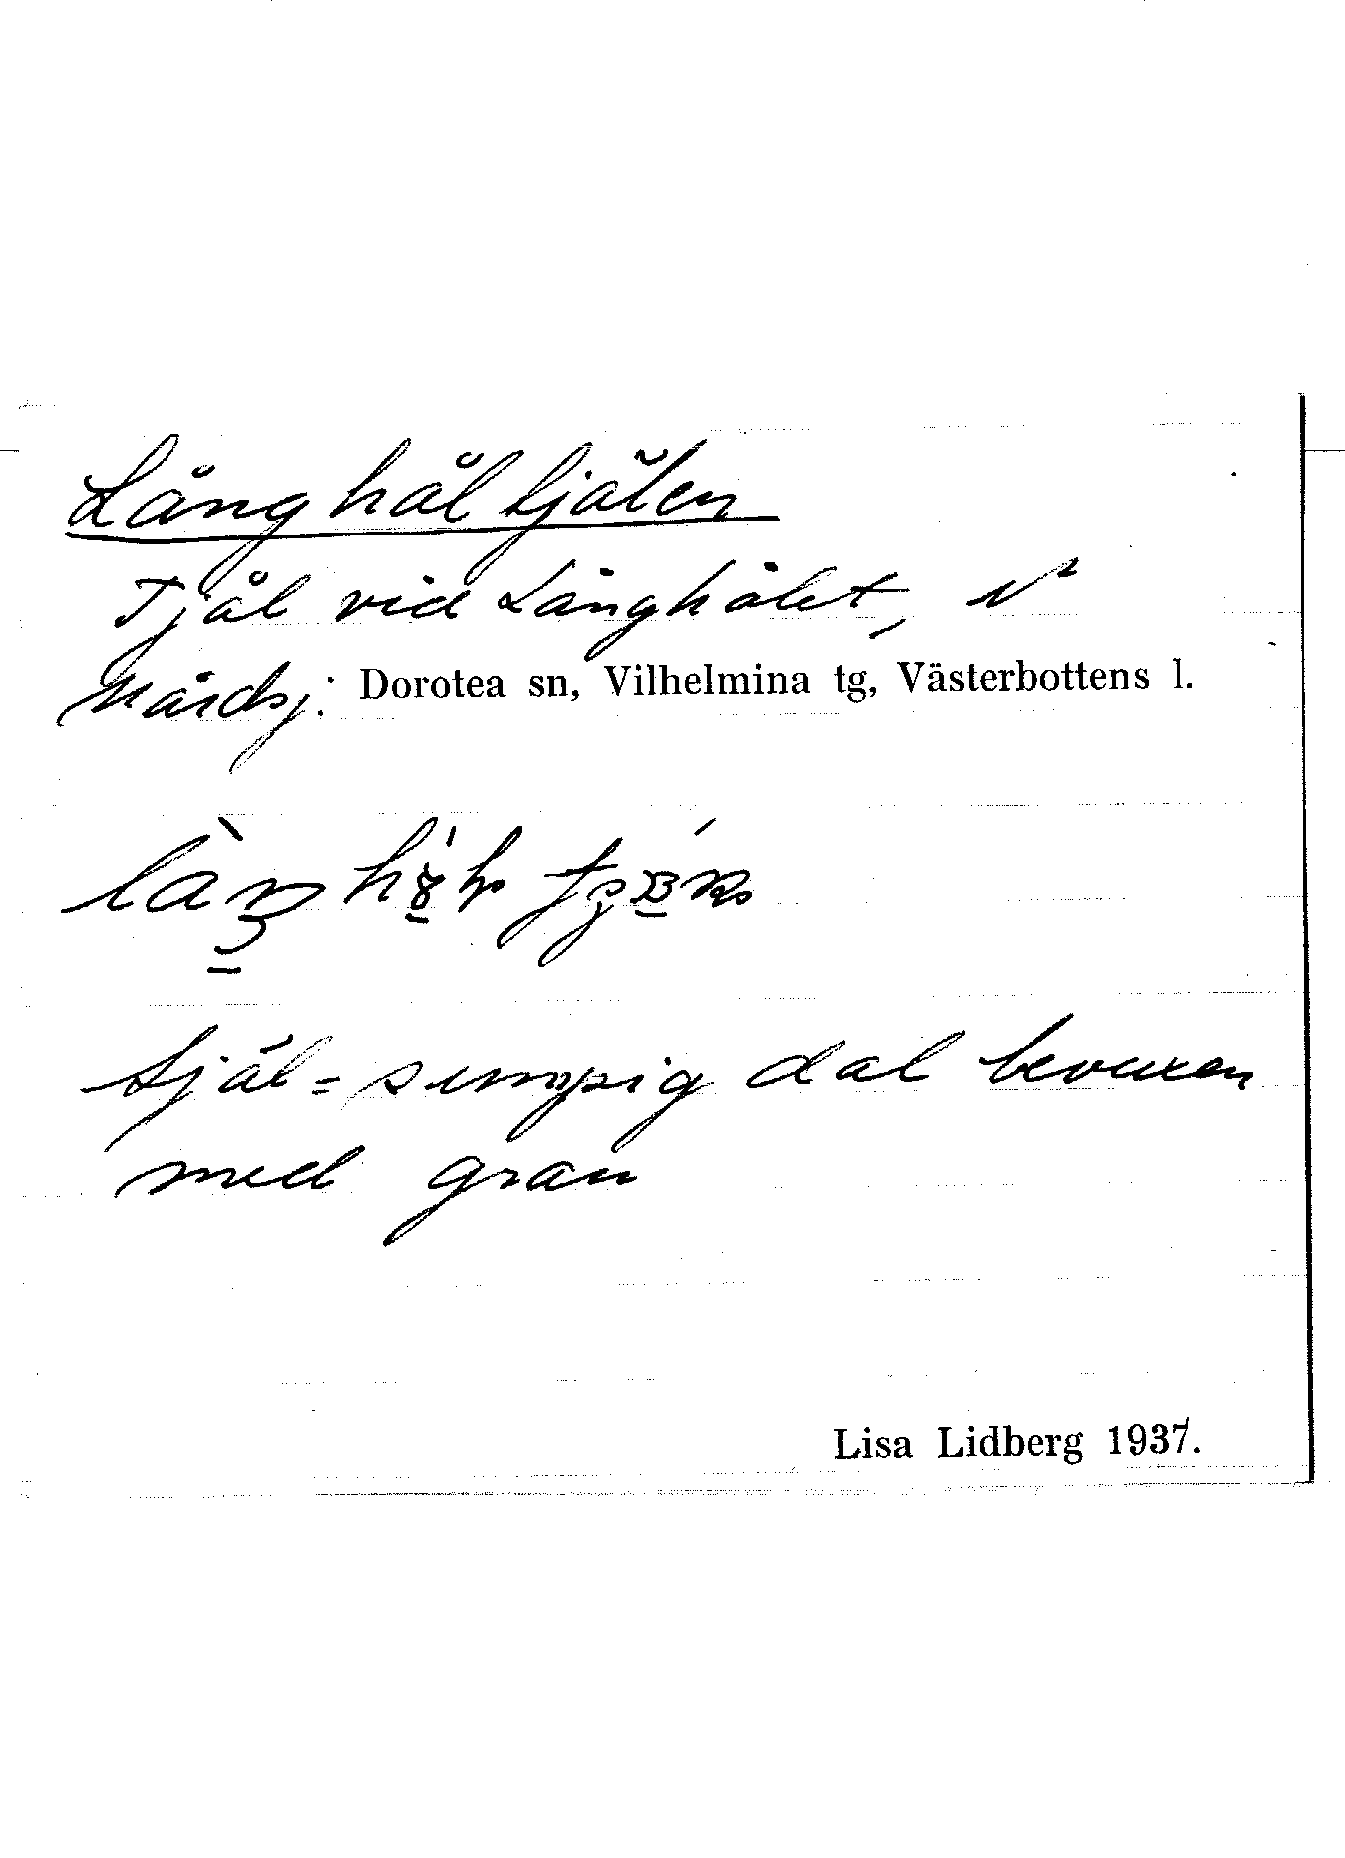 Långhåltjålen
Tjål vid Långhålet, N
Mårdsj: Dorotea sn, Vilhelmina tg, Västerbottens l.
tjål = sumpig dal bevuxen
med gran
Lisa Lidberg 1937.